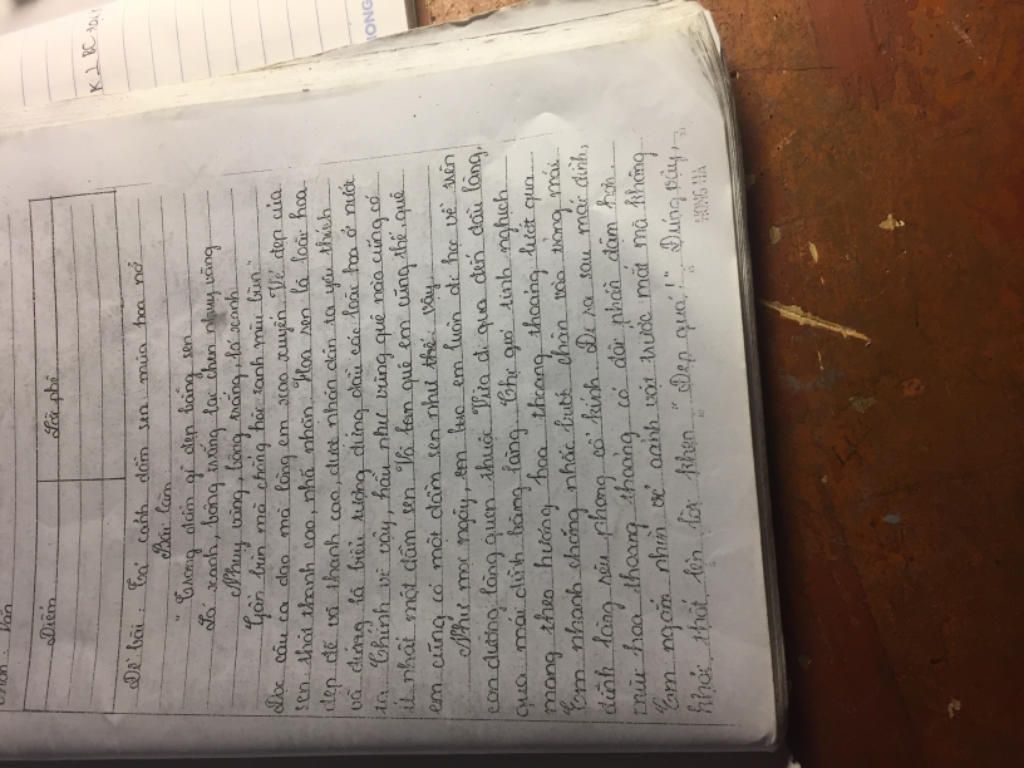 K2 BC
Điểm
Lời phê
Đề bài: Tả cảnh đầm sen mùa hoa nở
Bài làm
"Trong đầm gì đẹp bằng sen
Lá xanh, bông trắng lại chen nhụy vàng
Nhụy vàng, bông trắng, lá xanh
Gần bùn mà chẳng hôi tanh mùi bùn"
Đọc câu ca dao mà lòng em xao xuyến. Vẻ đẹp của
sen thật thanh cao, nhã nhặn. Hoa sen là loài hoa
đẹp đẽ và thanh cao, được nhân dân ta yêu thích
và đứng là biểu tượng đứng đầu các loài hoa ở nước
ta. Chính vì vậy, hầu như vùng quê nào cũng có
ít nhất một đầm sen. Và làng quê em cũng thế quê
em cũng có một đầm sen như thế vậy.
Như mọi ngày, em tục em luôn đi học về trên
con đường làng quen thuộc. Vừa đi qua đến đầu làng,
qua mái đình làng. Chị gió tinh nghịch
mang theo hương hoa thoang thoảng lướt qua.
Em nhanh chóng nhấc bước chân vào trong mái
đình làng rêu phong cổ kính. Đi ra sau mái đình,
mùi hoa thoang thoảng có đôi phần đậm hơn.
Em ngắm nhìn vẻ xanh với trước mắt mà không
khỏi thốt lên lời khen "Đẹp quá!". Đúng vậy,
HỒNG HÀ